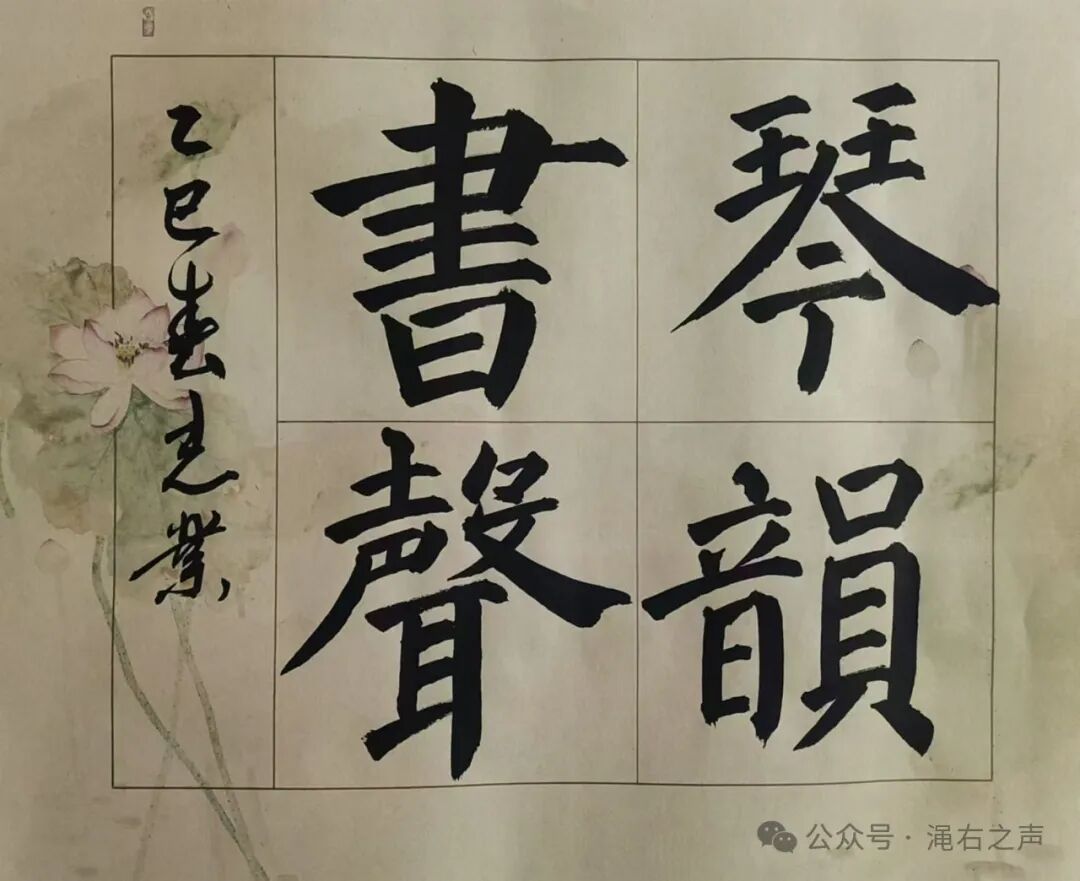 琴韻
書聲
乙巳春志業
公众号·渑右之声